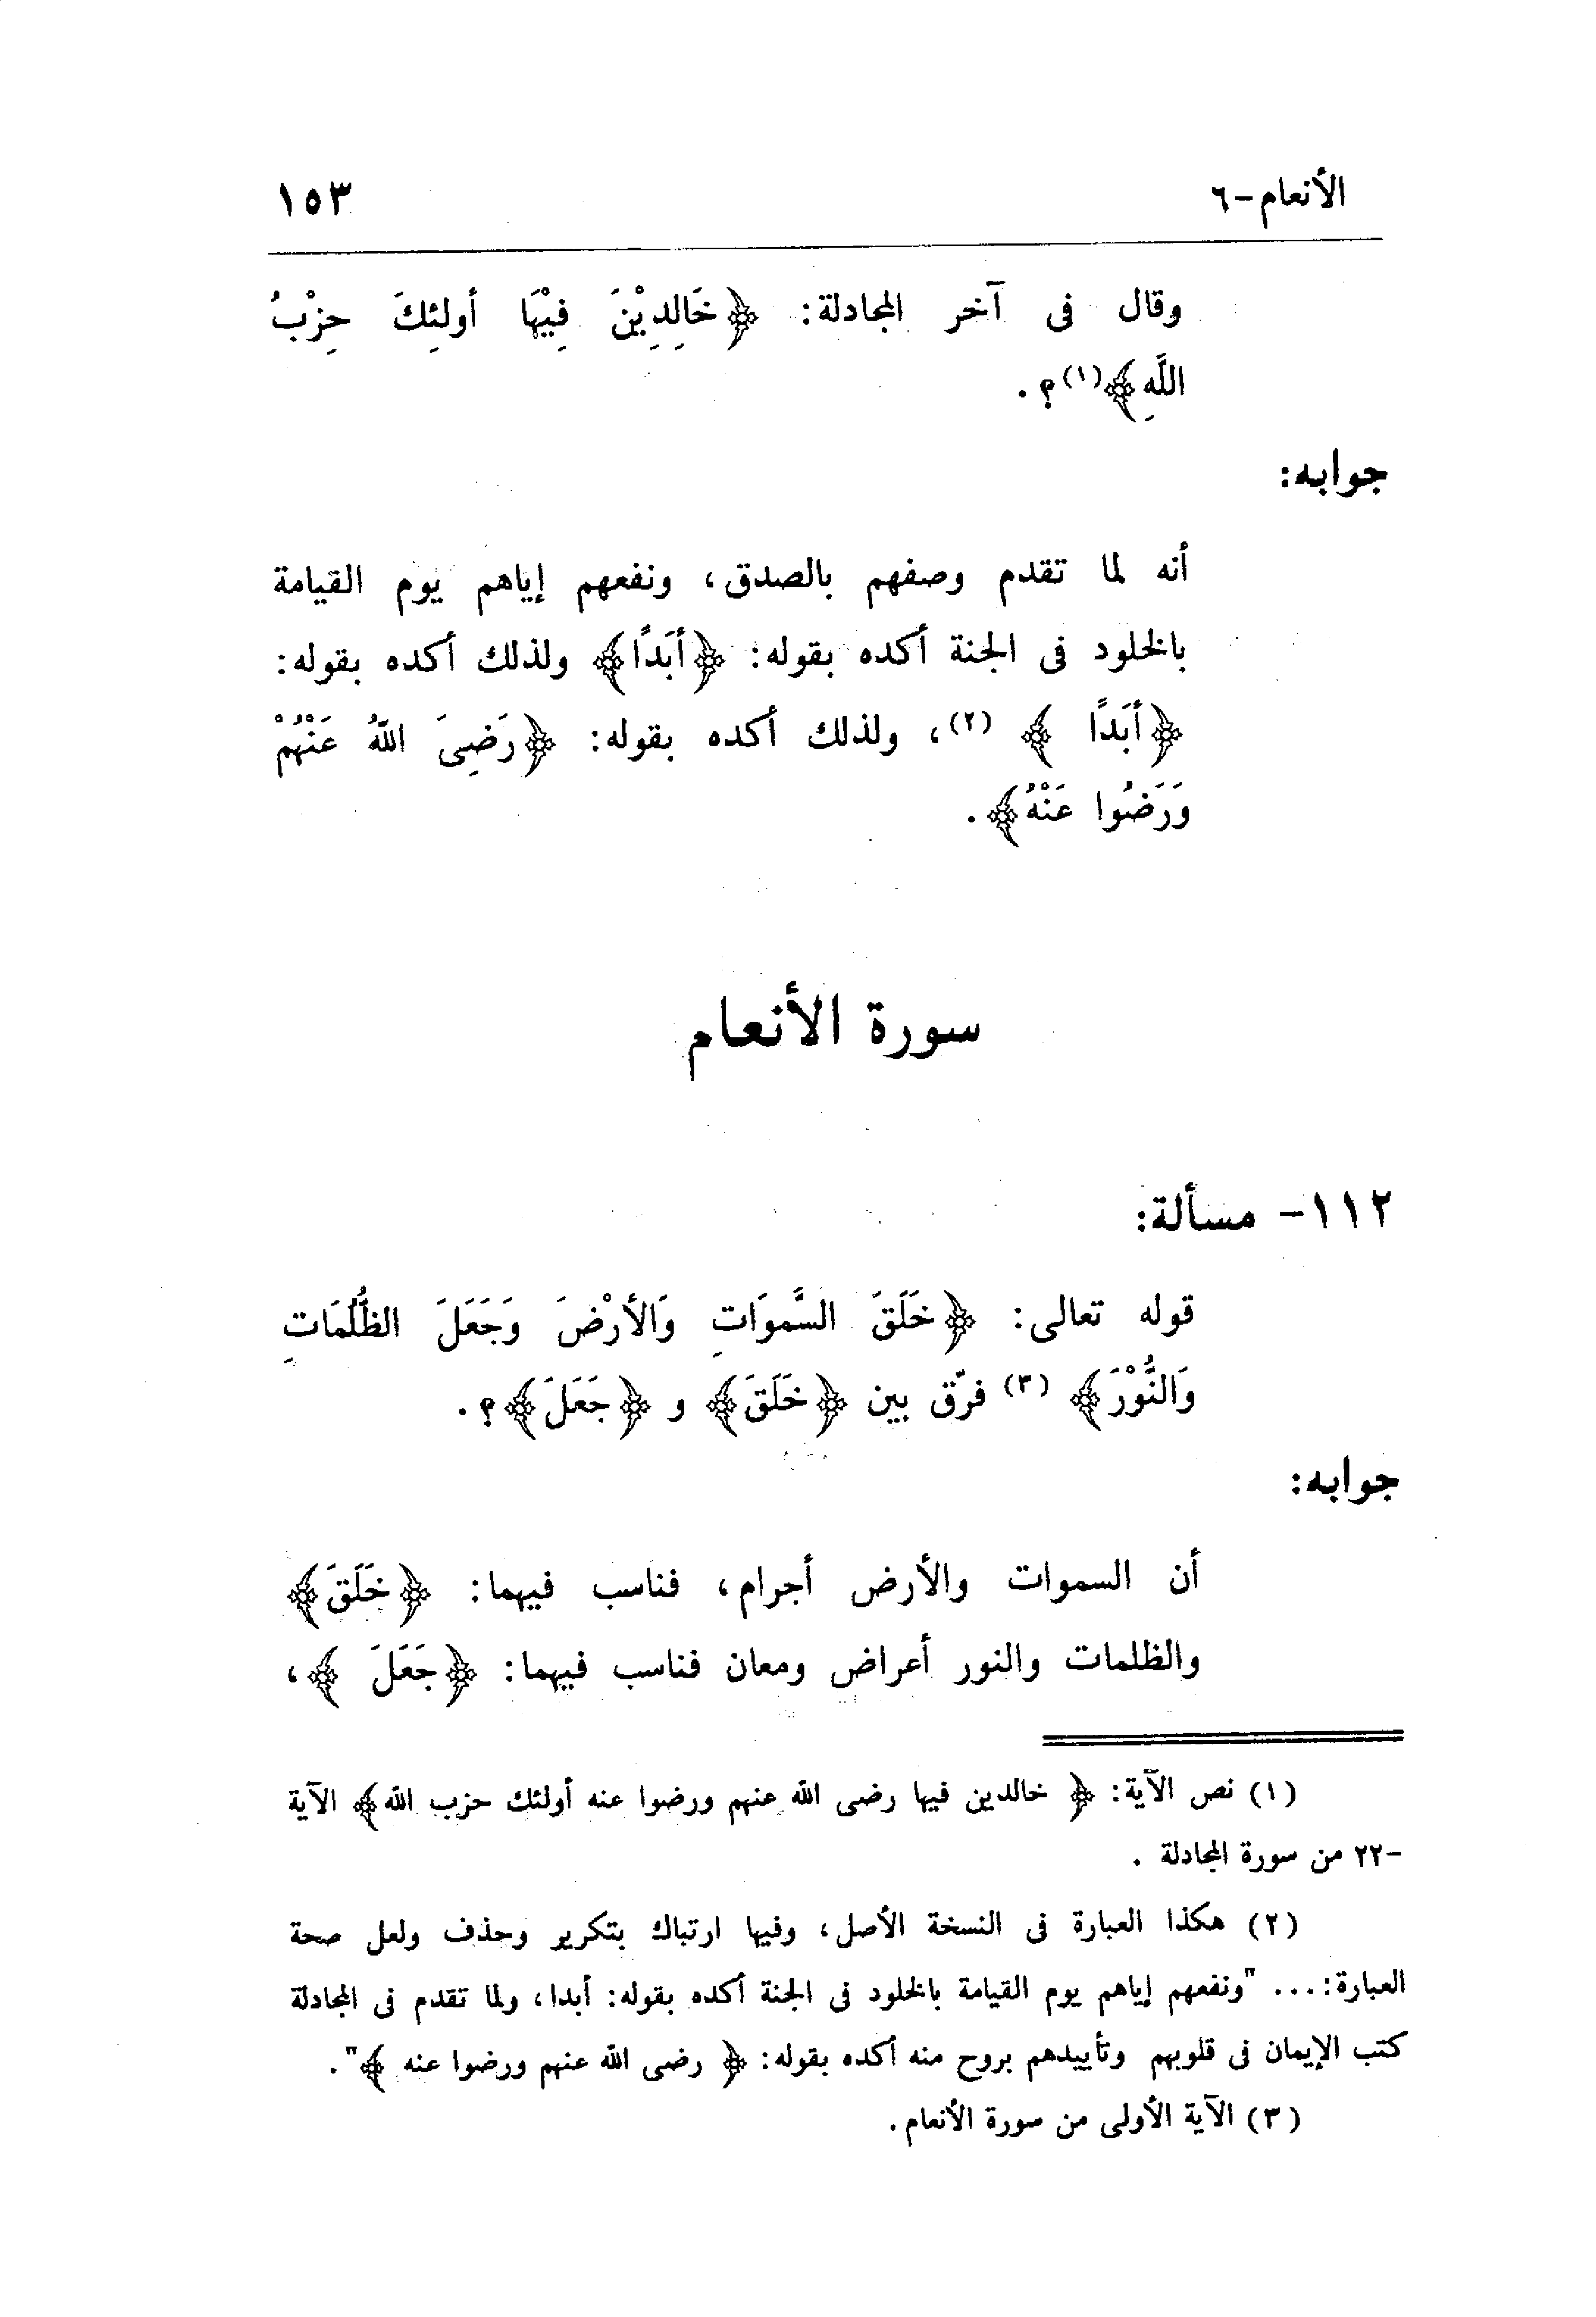 الأنعام-٦ ١٥٣
وقال فى آخر المجادلة: ﴿خَالِدِيْنَ فِيْهَا أولئِكَ حِزْبُ
اللَّهِ﴾(١)؟ .
جوابه:
أنه لما تقدم وصفهم بالصدق، ونفعهم إياهم يوم القيامة
بالخلود فى الجنة أكده بقوله: ﴿أبَداً﴾ ولذلك أكده بقوله:
﴿أبَداً ﴾ (٢)، ولذلك أكده بقوله: ﴿رَضِىَ اللهُ عَنْهُمْ
وَرَضُوا عَنْهُ﴾.
سورة الأنعام
١١٢- مسألة:
قوله تعالى: ﴿خَلَقَ السَّموَاتِ وَالأرْضَ وَجَعَلَ الظُّلُمَاتِ
وَالنُّوْرَ﴾ (٣) فرّق بين ﴿خَلَقَ﴾ و ﴿جَعَلَ﴾؟ .
جوابه:
أن السموات والأرض أجرام، فناسب فيهما: ﴿خَلَقَ﴾
والظلمات والنور أعراض ومعان فناسب فيهما: ﴿جَعَلَ ﴾،
(١) نص الآية: ﴿ خالدين فيها رضى الله عنهم ورضوا عنه أولئك حزب الله﴾ الآية
-٢٢ من سورة المجادلة .
(٢) هكذا العبارة فى النسخة الأصل، وفيها ارتباك بتكرير وحذف ولعل صحة
العبارة: ... "ونفعهم إياهم يوم القيامة بالخلود فى الجنة أكده بقوله: أبدا، ولما تقدم فى المجادلة
كتب الإيمان فى قلوبهم وتأييدهم بروح منه أكده بقوله: ﴿ رضى الله عنهم ورضوا عنه ﴾".
(٣) الآية الأولى من سورة الأنعام.